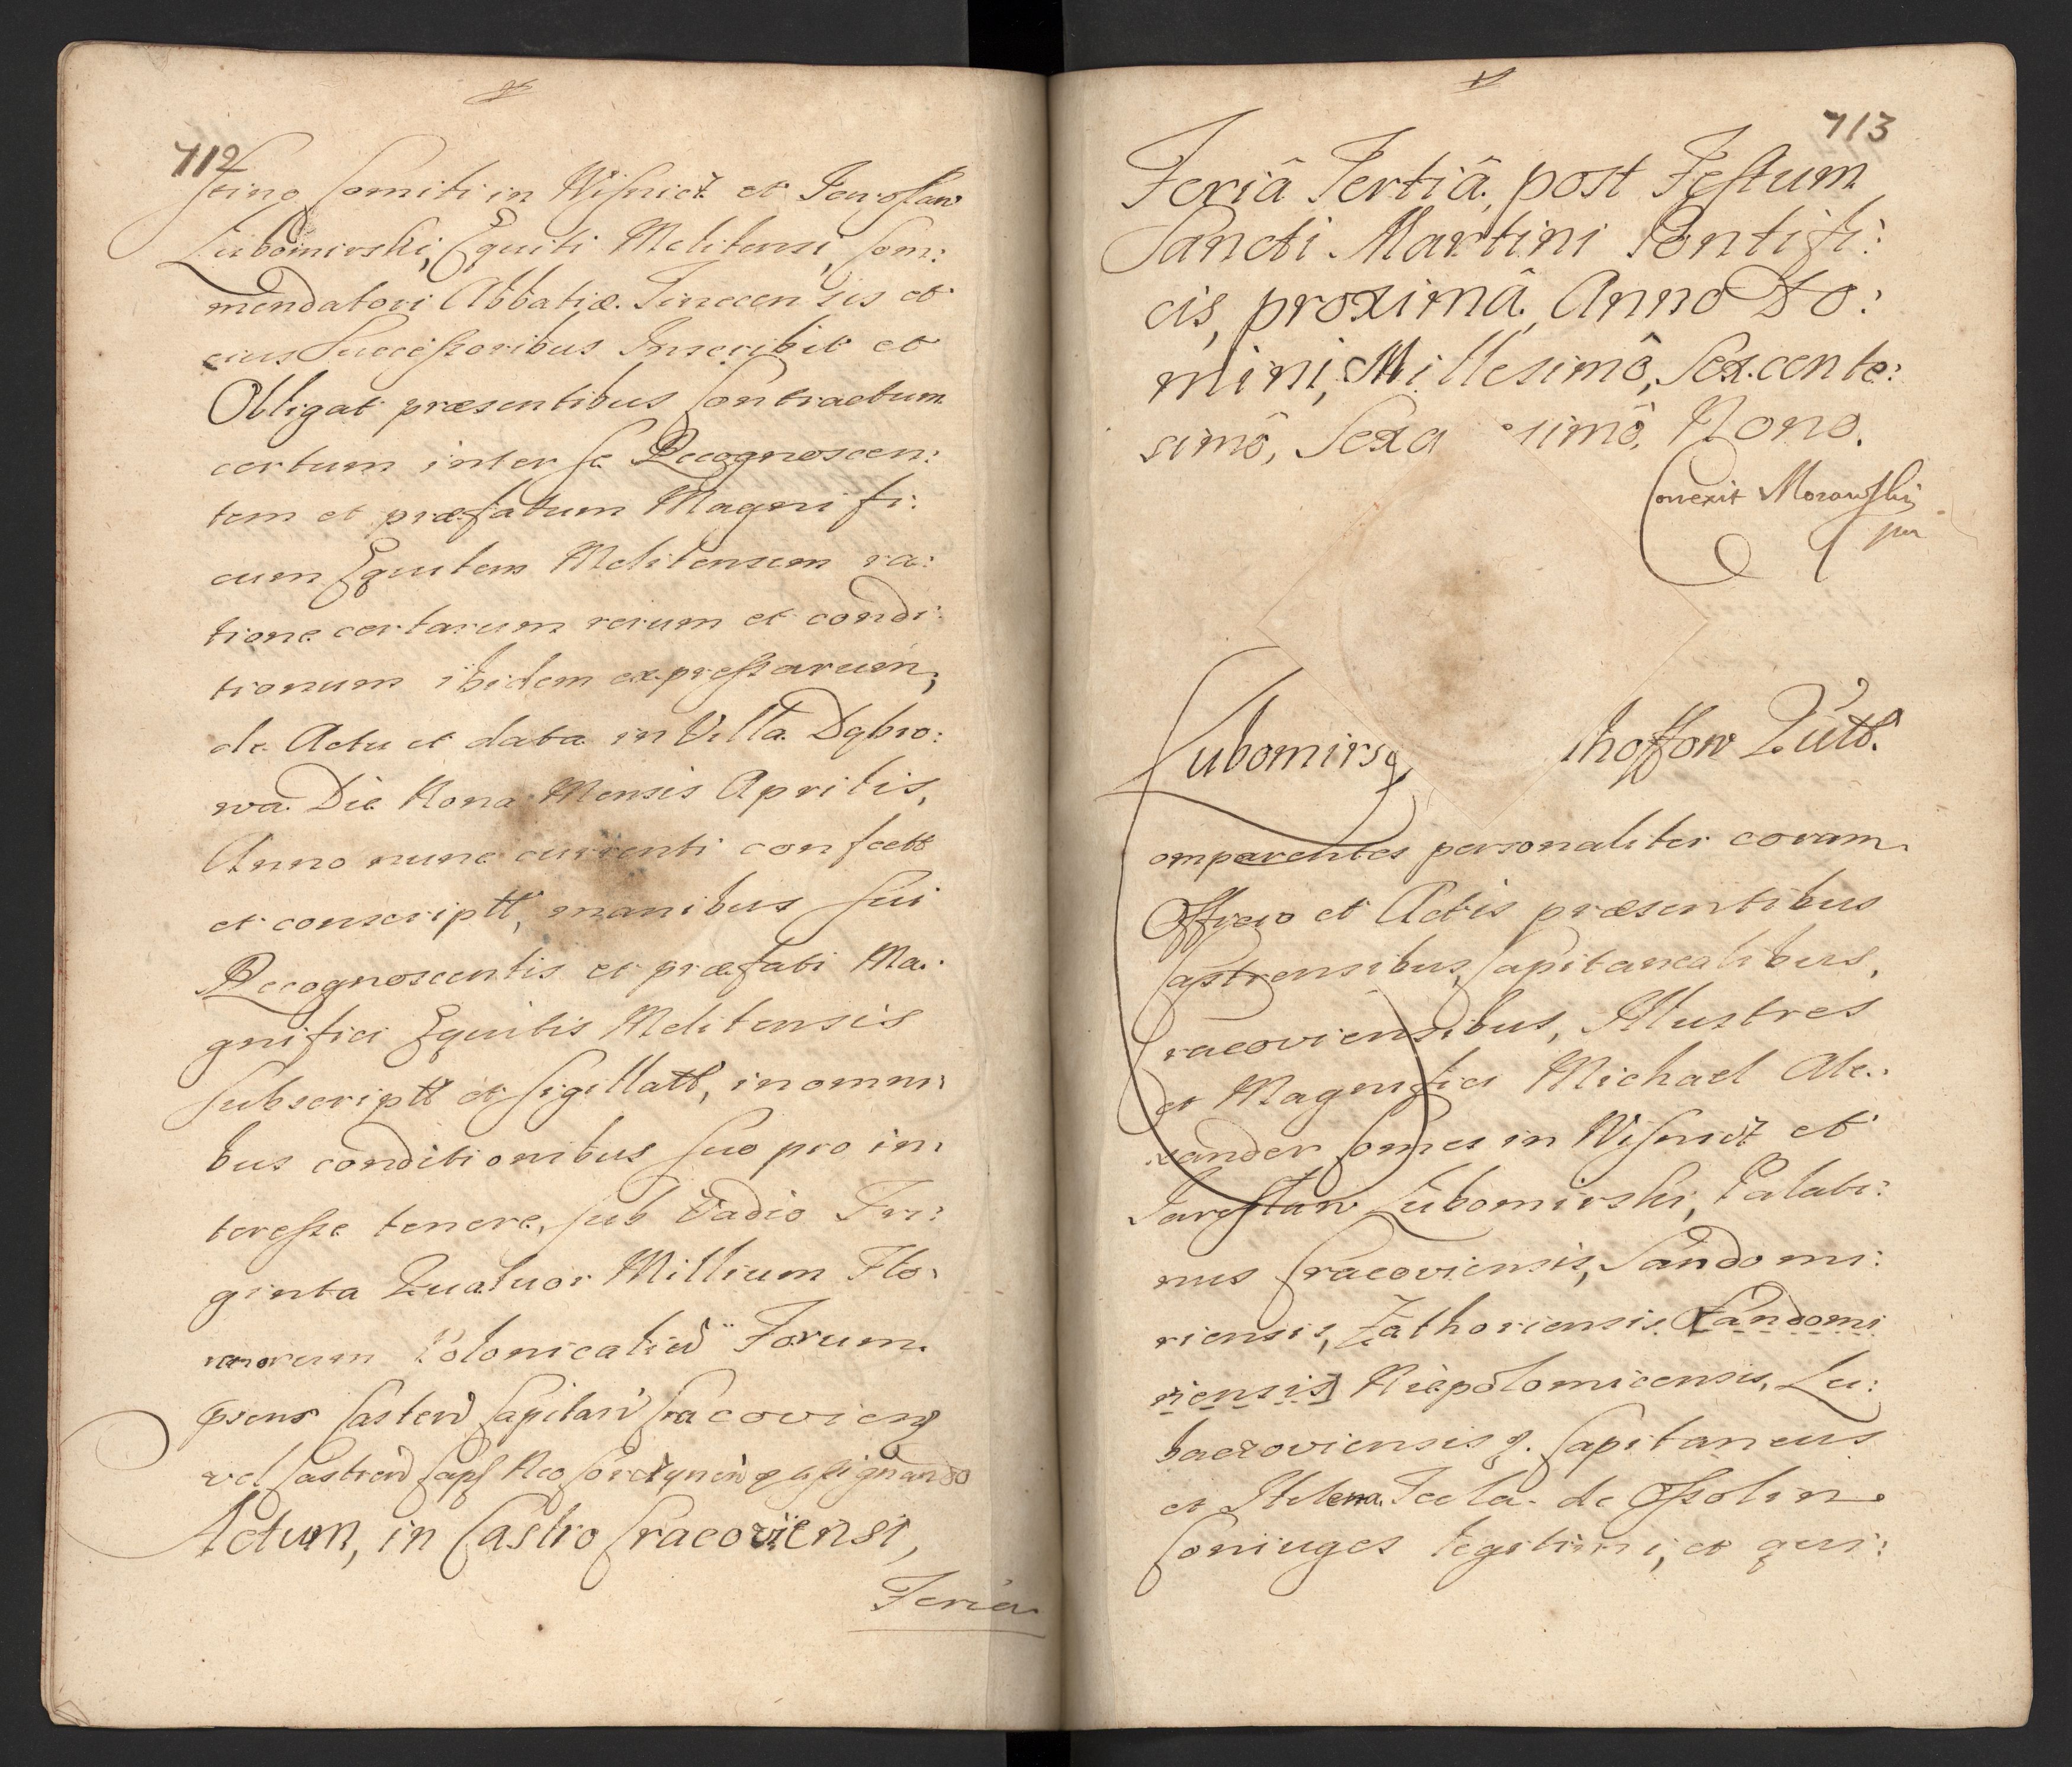 712
stino Comiti in Wisnicz et Jarosław
Lubomirski, Equiti Melitensi, Com:
mendatori Abbatiæ Tinecensis et
eius Successoribus Inscribit et
Obligat præsentibus Contractum
certum inter se Recognoscen:
tem et præfatum Magnifi:
cum Equitem Melitensem ra:
tione certarum rerum et condi:
tionum ibidem expressarum,
de Actu et data in Villa Dąbro:
wa Die Nona Mensis Aprilis,
Anno nunc currenti confectt
et conscriptt, manibus sui
Recognoscentis et præfati Ma:
gnifici Equitis Melitensis
subscriptt et sigillatt, in omni:
bus conditionibus suo pro in:
teresse tenere, sub Vadio Tri:
ginta Quatuor Millium Flo:
renorum Polonicaliu Forum
psens Castren Capitan Cracovien
vel Castren Capl assignando
Actum, in Castro Cracoviensi,
Feria
713
Feriâ Tertiâ, post Festum
Sancti Martini Pontifi:
cis, proximâ, Anno Do:
mini, Millesimô, Sexcente:
simô, Sexa simô, Nono.
Correxit Morawski
mp
Lubomirsq thoffow Quitt.
omparentes personaliter coram
Officio et Actis præsentibus
Castrensibus, Capitanealibus,
Cracoviensibus, Illustres
et Magnifici Michael Ale:
xander Comes in Wisnicz et
Jarosław Lubomirski, Palati:
nus Cracoviensis, Sandomi:
riensis, Zathoriensis Sandomi
riensis Niepolomicensis, Lu:
baczoviensis q. Capitaneus
et Helena Tecla de Ossolin
Coniuges legitimi, et qui: